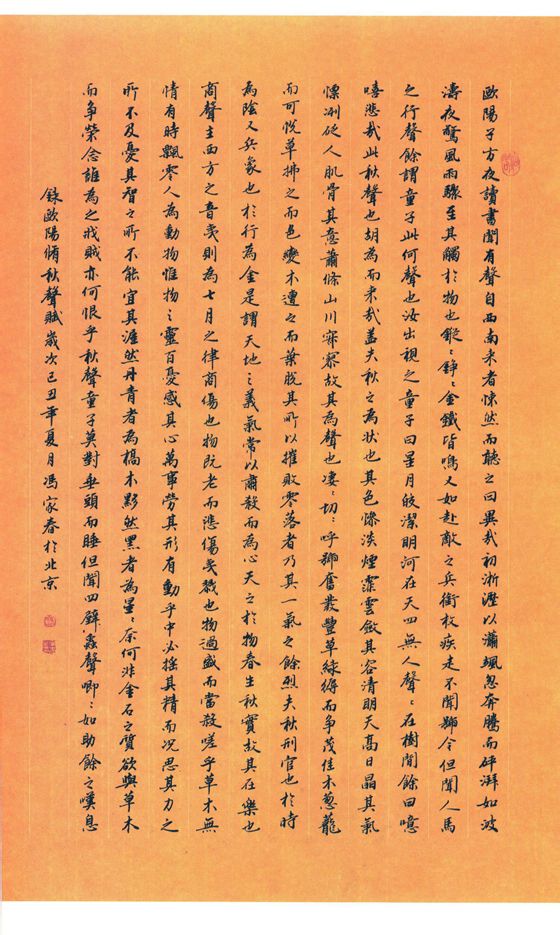 歐陽子方夜讀書聞有聲自西南來者悚然而聽之曰異哉初淅瀝以瀟颯忽奔騰而砰湃如波
濤夜驚風雨驟至其觸於物也鏦〻錚〻金鐵皆鳴又如赴敵之兵銜枚疾走不聞號令但聞人馬
之行聲餘謂童子此何聲也汝出視之童子曰星月皎潔明河在天四無人聲〻在樹間餘曰噫
嘻悲哉此秋聲也胡為而来哉盖夫秋之為狀也其色慘淡煙霏雲斂其容清明天高日晶其氣
慄冽砭人肌骨其意蕭條山川寂寥故其為聲也凄〻切〻呼號奮發豐草綠縟而争茂佳木葱蘢
而可悅草拂之而色變木遭之而葉脫其所以摧敗零落者乃其一氣之餘烈夫秋刑官也於時
為陰又兵象也於行為金是謂天地之義氣常以肅殺而為心天之於物春生秋實故其在樂也
商聲主西方之音夷則為七月之律商傷也物既老而悲傷夷戮也物過盛而當殺嗟乎草木無
情有時飄零人為動物惟物之靈百憂感其心萬事勞其形有動乎中必摇其精而况思其力之
所不及憂其智之所不能宜其渥然丹青者為槁木黟然黑者為星〻奈何非金石之質欲與草木
而争榮念誰為之戕賊亦何恨乎秋聲童子莫對垂頭而睡但聞四壁蟲聲唧〻如助餘之嘆息
錄歐陽脩秋聲賦歲次己丑年夏月馮家春於北京